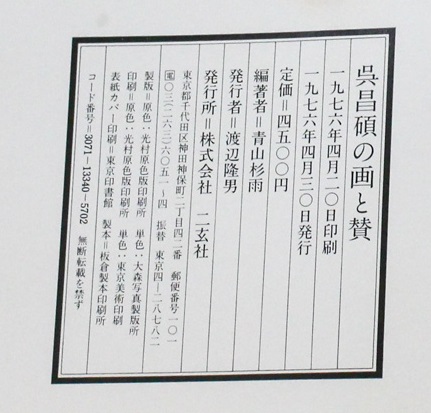 呉昌碩の画と賛
一九七六年四月二〇日印刷
一九七六年四月三〇日発行
定価＝四五〇〇円
編著者＝青山杉雨
発行者＝渡辺隆男
発行所＝株式会社 二玄社
東京都千代田区神田神保町二丁目四二番 郵便番号一〇一
電〇三（二六三）六〇五一〜四 振替 東京四―二八七八二
製版＝原色：光村原色版印刷所 単色：大森写真製版所
印刷＝原色：光村原色版印刷所 単色：東京美術印刷
表紙カバー印刷＝東京印書館 製本＝板倉製本印刷所
コード番号＝3071―13340―5702 無断転載を禁ず